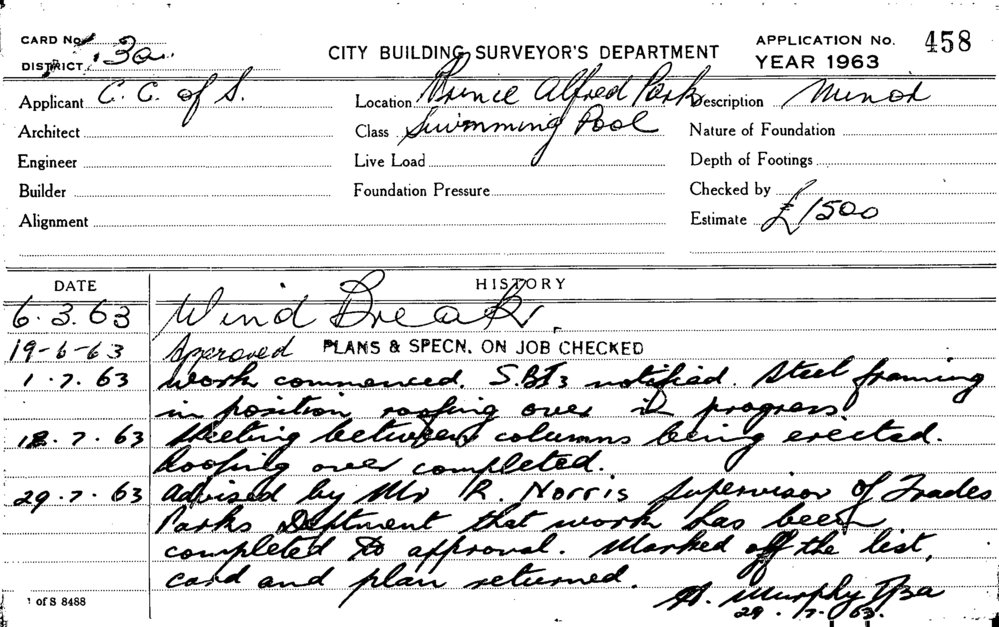 CARD No. CITY BUILDING SURVEYOR'S DEPARTMENT APPLICATION No. 458
DISTRICT 13a YEAR 1963
Applicant C. C. of S. Location Prince Alfred Park Description Minor
Architect Class Swimming Pool Nature of Foundation
Engineer Live Load Depth of Footings
Builder Foundation Pressure Checked by
Alignment Estimate £1500
DATE HISTORY
6.3.63 Wind Break.
19-6-63 Approved PLANS & SPECN. ON JOB CHECKED
1.7.63 Work commenced. notified. Steel framing
in position, roofing over in progress.
18.7.63 Sheeting between columns being erected.
Roofing over completed.
29.7.63 Advised by Mr R. Norris Supervisor of Trades
Parks that work has been
completed to approval. Marked off the list,
card and plan returned.
1 of S 8488 Murphy
29.7.63.